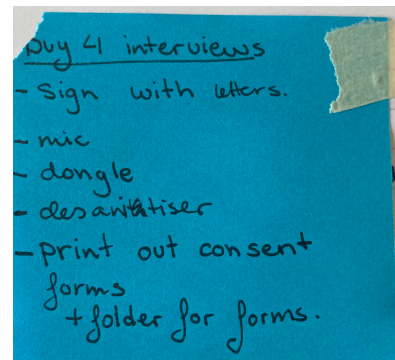 buy 4 interviews
- Sign with letters.
- mic
- dongle
- desanitiser
- print out consent
forms
+ folder for forms.